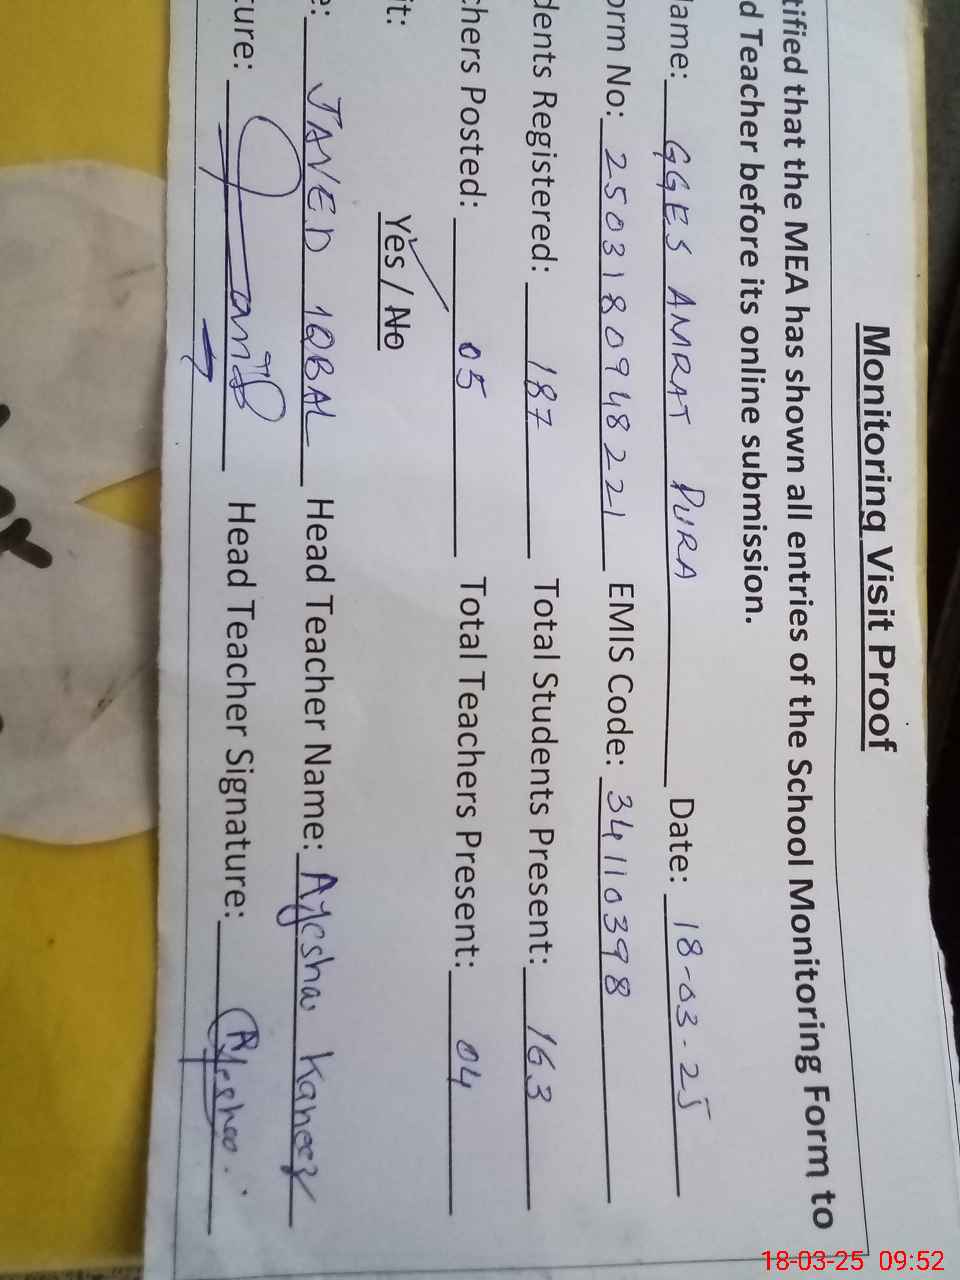 Monitoring Visit Proof
tified that the MEA has shown all entries of the School Monitoring Form to
d Teacher before its online submission.
lame: GGES AMRAT PURA Date: 18-03-25
orm No: 2503180948221 EMIS Code: 34110398
dents Registered: 187 Total Students Present: 163
chers Posted: 05 Total Teachers Present: 04
it: Yes / No
e: JAVED IQBAL Head Teacher Name: Ayesha Kaneez
ture: Head Teacher Signature: Ayesha
18-03-25 09:52